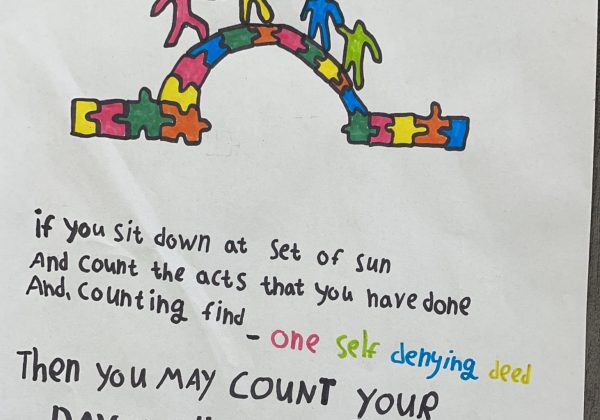 if you sit down at set of sun
And count the acts that you have done
And, counting find
- one self denying deed
Then you MAY COUNT YOUR